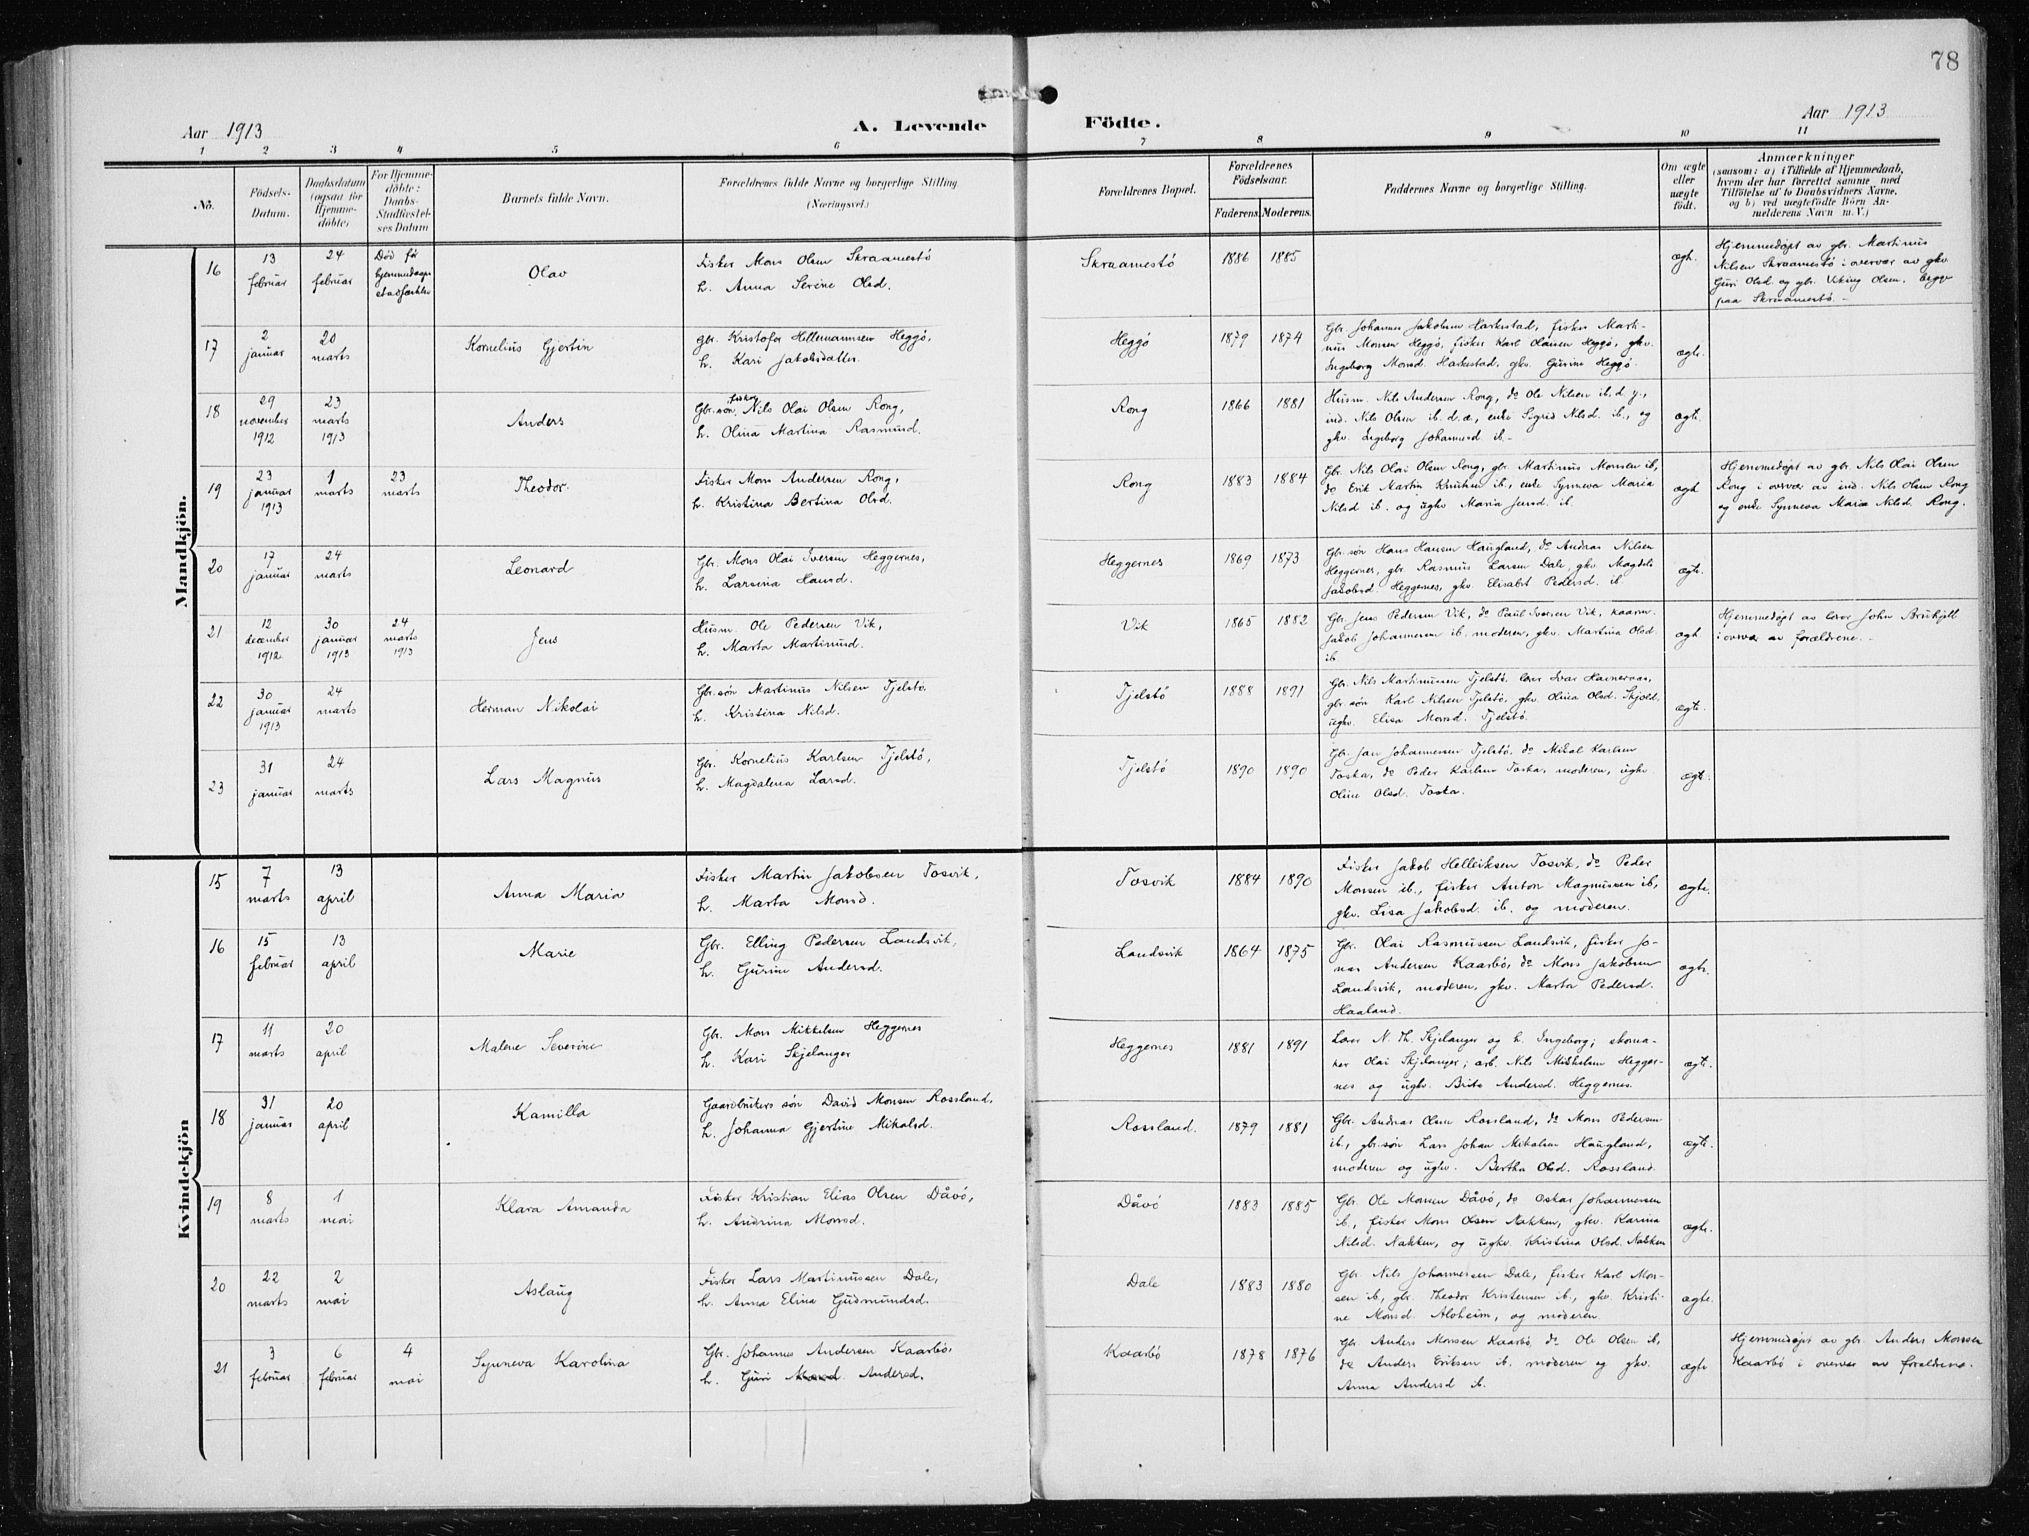 78
Aar 1913
A. Levende Födte.
Aar 1913
1 2 3 4 5 6 7 8 9 10 11
No.
Födsels-Datum.
Daabsdatum (ogsaa for Hjemme-döbte)
For Hjemme-döbte: Daabs-Stadfæstel-ses Datum
Barnets fulde Navn.
Forældrenes fulde Navne og borgerlige Stilling
(Næringsvei.)
Forældrenes Bopæl.
Forældrenes Födselsaar.
Faderens. Moderens.
Faddernes Navne og borgerlige Stilling.
Om ægte eller uægte födt.
Anmærkninger
(saasom: a) i Tilfælde af Hjemmedaab,
hvem der har forrettet samme med
Tilföielse af to Daabsvidners Navne,
og b) ved uægtefödte Börn An-
melderens Navn m. V.)
Mandkjön.
16 13 februar 24 februar Död för hjemmedaapen stadfæstet Olav
Fisker Mons Olsen Skraamestö
h. Anna Serine Olsd.
Skraamestö 1886 1885 ægt.
Hjemmedöpt av gbr. Martinus
Nilsen Skraamestö i overvær av gkv.
Guri Olsd. og gbr. Viking Olsen, begge
paa Skraamestö. -
17 2 januar 20 marts Kornelius Gjertin
gbr. Kristofer Hellemannsen Heggö,
h. Kari Jakobsdatter.
Heggö 1879 1874
Gbr. Johannes Jakobsen Harkestad, fisker Mart-
nus Monsen Heggö, fisker Karl Olaisen Heggö, gkv.
Ingeborg Monsd. Harkestad, gkv. Gurine Heggö.
ægte.
18 29 november 1912 23 marts 1913 Anders
Gbr.søn, fisker Nils Olai Olsen Rong,
h. Olina Martina Rasmusd.
Rong 1866 1881
Husm. Nils Andersen Rong, do Ole Nilsen ib. d.y.,
ind. Nils Olsen ib. d.æ., enke Sigrid Nilsd. ib., og
gkv. Ingeborg Johannesd ib. -
ægt.
19 23 januar 1913 1 marts 23 marts Theodor.
Fisker Mons Andersen Rong,
h. Kristina Bertina Olsd.
Rong 1883 1884
Gbr. Nils Olai Olsen Rong, gbr. Martinus Monsen ib,
do Erik Martin Knutsen ib., enke Synneva Maria
Nilsd ib. og ugkv Maria Jensd. ib.
ægt
Hjemmedöpt av gbr. Nils Olai Olsen
Rong i overvær av ind. Nils Olsen Rong
og enke Synneva Maria Nilsd. Rong.
20 17 januar 24 marts Leonard
Gbr. Mons Olai Iversen Heggernes,
h. Larsina Hansd.
Heggernes 1869 1873
Gbr. søn Hans Hansen Haugland, do Andreas Nilsen
Heggernes, gbr. Rasmus Larsen Dale, gkv. Magdeli
Jakobsd. Heggernes, gkv. Elisabet Pedersd. ib.
ægte.
21 12 december 1912 30 januar 1913 24 marts 1913 Jens
Husm. Ole Pedersen Vik,
h. Marta Martinusd.
Vik 1865 1882
Gbr. Jens Pedersen Vik, do Paul Iversen Vik, kaarm.
Jakob Johannessen ib. moderen, gkv. Martina Olsd.
ib
ægt
Hjemmedöpt av lærer John Bruhjell
i overvær av forældrene. -
22 30 januar 1913 24 marts Herman Nikolai
Gbr.søn Martinus Nilsen Tjelstö.
h. Kristina Nilsd.
Tjelstö 1888 1891
Gbr. Nils Martinussen Tjelstö, lærer Ivar Hamervas,
gbr. søn Karl Nilsen Tjelstö, gkv. Olina Olsd. Skjold,
ugkv. Elisa Monsd. Tjelstö.
ægte.
23 31 januar 24 marts Lars Magnus
Gbr. Kornelius Karlsen Tjelstö,
h. Magdalena Larsd.
Tjelstö 1890 1890
Gbr. Jan Johannessen Tjelstö, do Mikal Karlsen
Toska, do Peder Karlsen Toska, moderen, ugkv.
Oline Olsd. Toska.
ægt.
Kvindekjön
15 7 marts 13 april Anna Maria
Fisker Martin Jakobsen Tosvik,
h. Marta Monsd.
Tosvik 1884 1890
Fisker Jakob Helleiksen Tosvik, do Peder
Monsen ib., fisker Anton Magnussen ib,
gkv. Lisa Jakobsd. ib. og moderen.
ægte.
16 15 februar 13 april Marie
Gbr. Elling Pedersen Landsvik,
h. Gurine Andersd.
Landsvik 1864 1875
Gbr. Olai Rasmussen Landsvik, fisker Jo-
nas Andersen Kaarbö, do Mons Jakobsen
Landsvik, moderen, gkv. Marta Pedersd.
Haaland.
ægte.
17 11 marts 20 april Malene Severine
Gbr. Mons Mikkelsen Heggernes
h. Kari Skjelanger
Heggernes 1881 1891
Lærer N. Th. Skjelanger og h. Ingeborg; skoma-
ker Olai Skjelanger; arb. Nils Mikkelsen Hegger-
nes og ugkv. Brita Andersd. Heggernes.
ægt.
18 31 januar 20 april Kamilla
Gaardbrukers søn David Monsen Rossland,
h. Johanna Gjertine Mikalsd.
Rossland. 1879 1881
Gbr. Andreas Olsen Rossland, do Mons Pedersen
ib., gbr.søn Lars Johan Mikalsen Haugland,
moderen og ugkv. Bertha Olsd. Rossland.
ægte.
19 8 marts 1 mai Klara Amanda
Fisker Kristian Elias Olsen Dåvö,
h. Andrina Monsd.
Dåvö 1883 1885
Gbr. Ole Monsen Dåvö, do Oskar Johannessen
ib., fisker Mons Olsen Nakken, gkv. Karina
Nilsd. Nakken, og ugkv. Kristina Olsd. Nakken
ægte.
20 22 marts 2 mai Aslaug
Fisker Lars Martinussen Dale,
h. Anna Elina Gudmundsd.
Dale 1883 1880
Gbr. Nils Johannessen Dale, fisker Karl Mon-
sen ib, gbr. Theodor Kristensen ib., gkv. Kristi-
ne Monsd. Aloheim, og moderen.
ægte.
21 3 februar 6 februar 4 mai Synneva Karolina
Gbr. Johannes Andersen Kaarbö,
h. Guri Monsd. Andersd.
Kaarbö 1878 1876
Gbr. Anders Monsen Kaarbö, do Ole Olsen ib,
do Anders Eriksen ib. moderen og gkv.
Anna Andersd ib.
ægte
Hjemmedöpt av gbr. Anders Monsen
Kaarbö i overvær av forældrene.